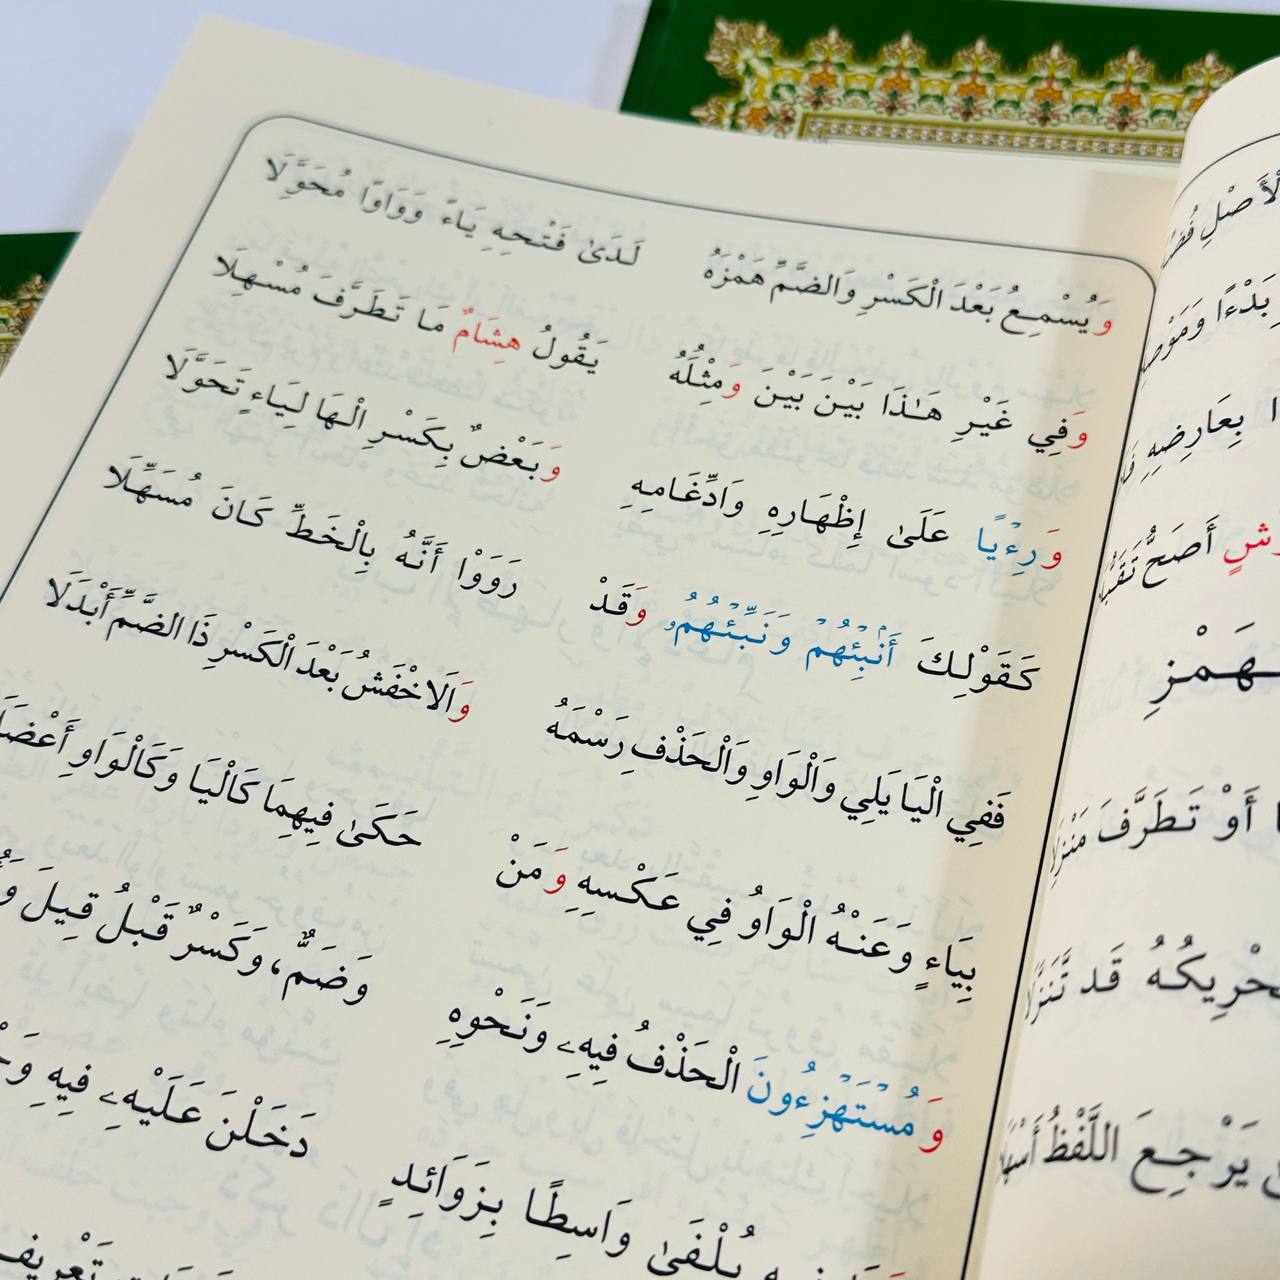 وَيُسْمِعُ بَعْدَ الْكَسْرِ وَالضَّمِّ هَمْزَهُ لَدَىٰ فَتْحِهِ يَاءً وَوَاوًا مُحَوَّلَا
وَفِي غَيْرِ هَـٰذَا بَيْنَ بَيْنَ وَمِثْلُهُ يَقُولُ هِشَامٌ مَا تَطَرَّفَ مُسْهِلَا
وَرِءْيًا عَلَىٰ إِظْهَارِهِ وَادِّغَامِهِ وَبَعْضٌ بِكَسْرِ الْهَا لِيَاءٍ تَحَوَّلَا
كَقَوْلِكَ أَنۢبِئْهُمْ وَنَبِّئْهُمُۥ وَقَدْ رَوَوْا أَنَّهُ بِالْخَطِّ كَانَ مُسَهِّلَا
فَفِي الْيَا يَلِي وَالْوَاوِ وَالْحَذْفِ رَسْمَهُ وَالَاخْفَشُ بَعْدَ الْكَسْرِ ذَا الضَّمِّ أَبْدَلَا
بِيَاءٍ وَعَنْهُ الْوَاوُ فِي عَكْسِهِ وَمَنْ حَكَىٰ فِيهِمَا كَالْيَا وَكَالْوَاوِ
وَمُسْتَهْزِءُونَ الْحَذْفُ فِيهِۦ وَنَحْوِهِ وَضَمٌّ، وَكَسْرٌ قَبْلُ قِيلَ
يُلْفَىٰ وَاسِطًا بِزَوَائِدٍ دَخَلْنَ عَلَيْهِۦ فِيهِ
تَعْرِيفٍ
بَدْءًا
بِعَارِضِهِ
أَصَحُّ
أَوْ تَطَرَّفَ مَنْزِلَا
قَد تَّنَزَّلَا
يَرْجِعَ اللَّفْظُ أَسْهَلَا